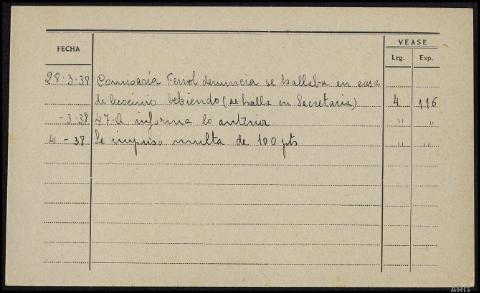 FECHA
VEASE
Leg. Exp.
28-3-38 Comisaría Ferrol denuncia se hallaba en casa
de lenocinio bebiendo (se halla en Secretaria) 4 116
-3-38 47-A informa lo anterior " "
4-38 Se impuso multa de 100 pts " "